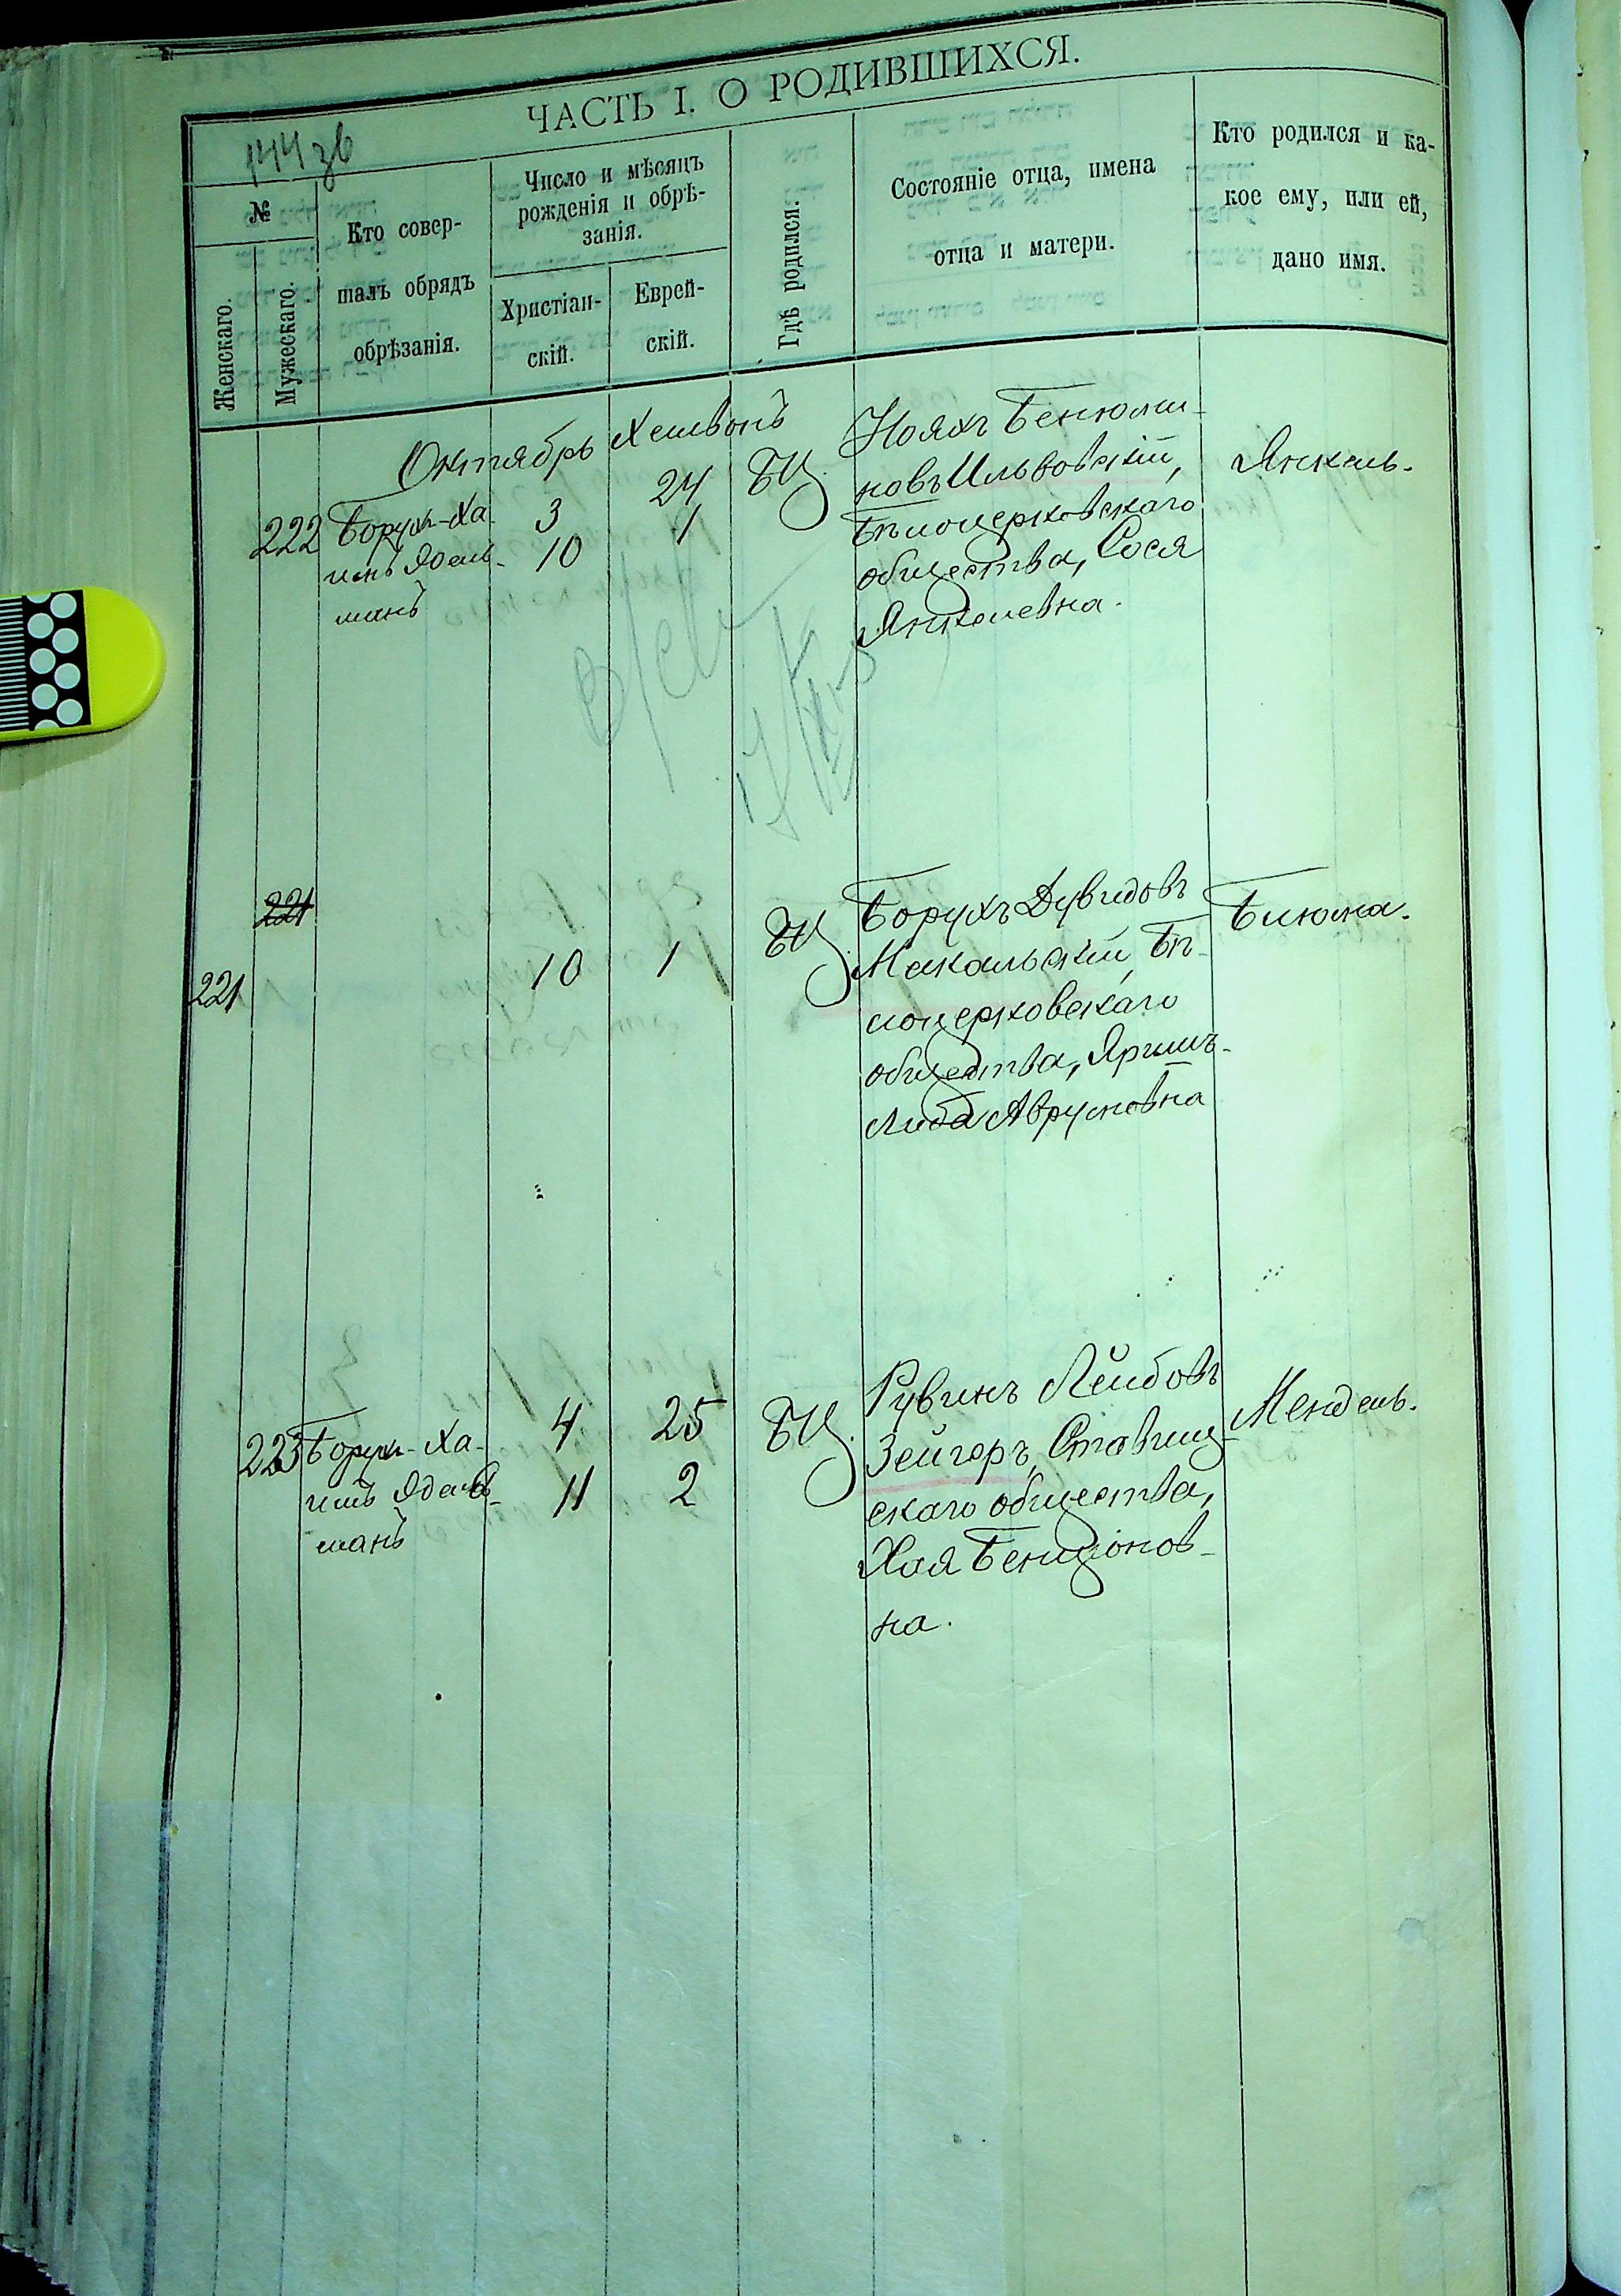 ЧАСТЬ I. О РОДИВШИХСЯ.
144 зв
№
Женскаго.
Мужескаго.
Кто совер-
шалъ обрядъ
обрѣзанія.
Число и мѣсяцъ
рожденія и обрѣ-
занія.
Христіан-
скій.
Еврей-
скій.
Гдѣ родился:
Состояніе отца, имена
отца и матери.
Кто родился и ка-
кое ему, или ей,
дано имя.
Октябрь Хешвонъ
222
Борухъ-Ха-
имъ Эдель-
манъ
3
10
24
1
БЦ.
Ноахъ Бенюми-
новъ Ильвовскій,
Бѣлоцерковскаго
общества, Сося
Янкелевна.
Янкель.
221
221
10
1
БЦ.
Борухъ Дувидовъ
Макальскій, Бѣ-
лоцерковскаго
общества,
Либа Аврумовна
Бнюма.
223
Борухъ-Ха-
имъ Эдель-
манъ
4
11
25
2
БЦ.
Рувинъ Лейбовъ
Зейгеръ, Ставищ-
скаго общества,
Хая Бенціонов-
на.
Мендель.